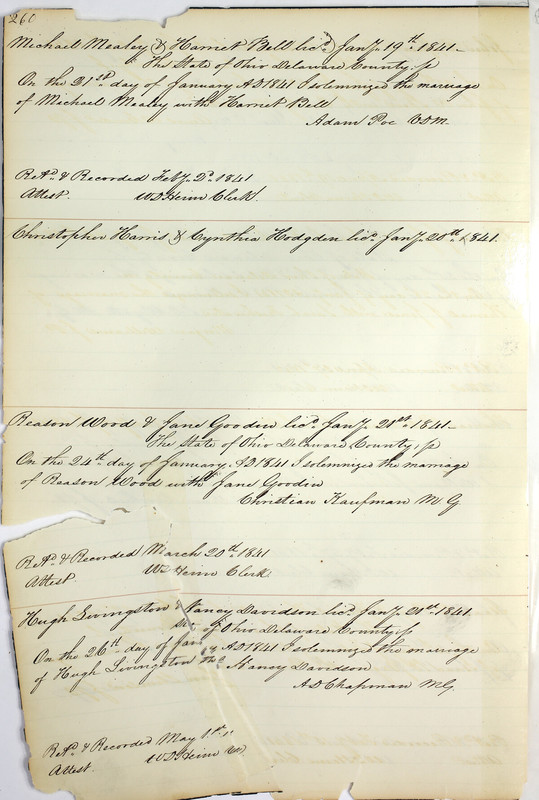 260
Michael Mealey & Harriet Bell licd. Jany. 19th. 1841-
The State of Ohio Delaware County, ss
On the 21st day of January AD 1841 I solemnized the marriage
of Michael Mealey with Harriet Bell
Adam Poe VDM
Retd. & Recorded Feby. 2d. 1841
Attest. WD Heim Clerk.
Christopher Harris & Cynthia Hodgden licd. Jany. 20th. 1841.
Reason Wood & Jane Goodin licd. Jany. 21st. 1841-
The State of Ohio Delaware County, ss
On the 24th. day of January AD 1841 I solemnized the marriage
of Reason Wood with Jane Goodin
Christian Kaufman M G
Retd. & Recorded March 20th. 1841
Attest WD Heim Clerk
Hugh Livingston & Nancy Davidson licd. Jany. 21st. 1841.
of Ohio Delaware County ss
On the 26th day of Jan AD 1841 I solemnized the marriage
of Hugh Livingston Nancy Davidson
AD Chapman MG
Retd. & Recorded May 1st.
Attest. WD Heim